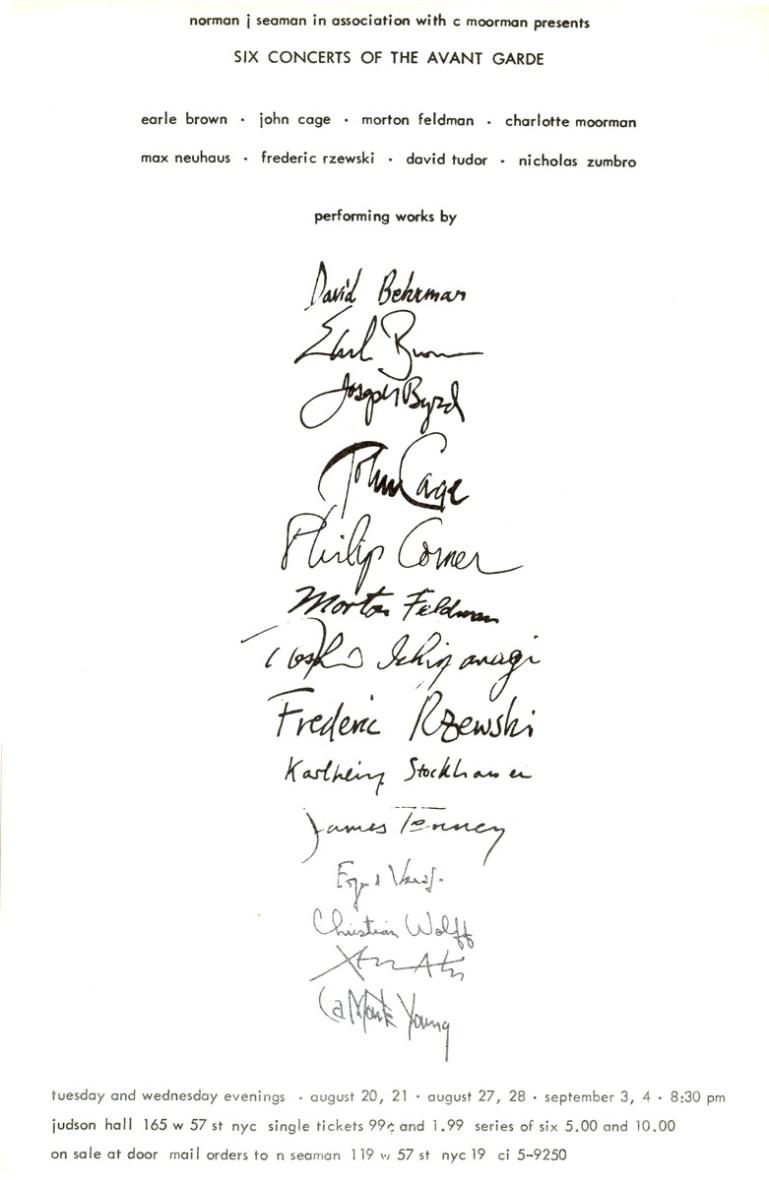 norman j seaman in association with c moorman presents
SIX CONCERTS OF THE AVANT GARDE
earle brown · john cage · morton feldman · charlotte moorman
max neuhaus · frederic rzewski · david tudor · nicholas zumbro
performing works by
David Behrman
Earle Brown
Joseph Byrd
John Cage
Philip Corner
Morton Feldman
Toshi Ichiyanagi
Frederic Rzewski
Karlheinz Stockhausen
James Tenney
Christian Wolff
La Monte Young
tuesday and wednesday evenings · august 20, 21 · august 27, 28 · september 3, 4 · 8:30 pm
judson hall 165 w 57 st nyc single tickets 99¢ and 1.99 series of six 5.00 and 10.00
on sale at door mail orders to n seaman 119 w 57 st nyc 19 ci 5-9250